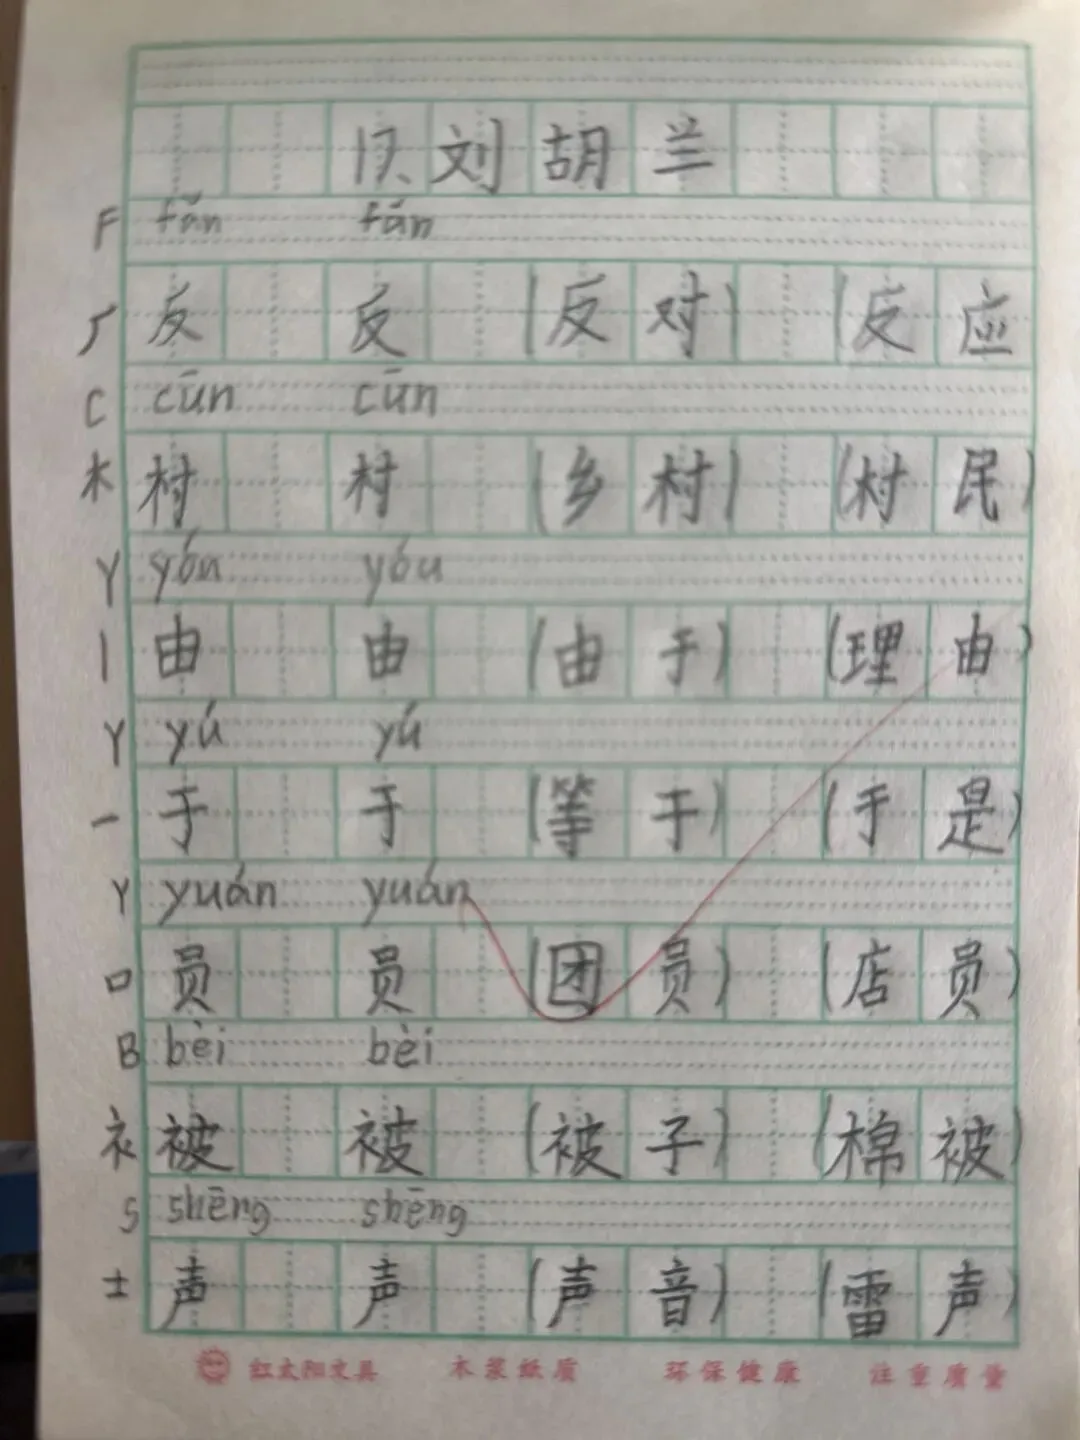 17、刘胡兰
F fǎn fǎn
厂 反 反 (反对) (反应
C cūn cūn
木 村 村 (乡村) (村民)
Y yóu yóu
丨 由 由 (由于) (理由)
Y yú yú
一 于 于 (等于) (于是)
Y yuán yuán
口 员 员 (团员) (店员)
B bèi bèi
衤 被 被 (被子) (棉被)
S shēng shēng
士 声 声 (声音) (雷声)
红太阳文具 木浆纸质 环保健康 注重质量